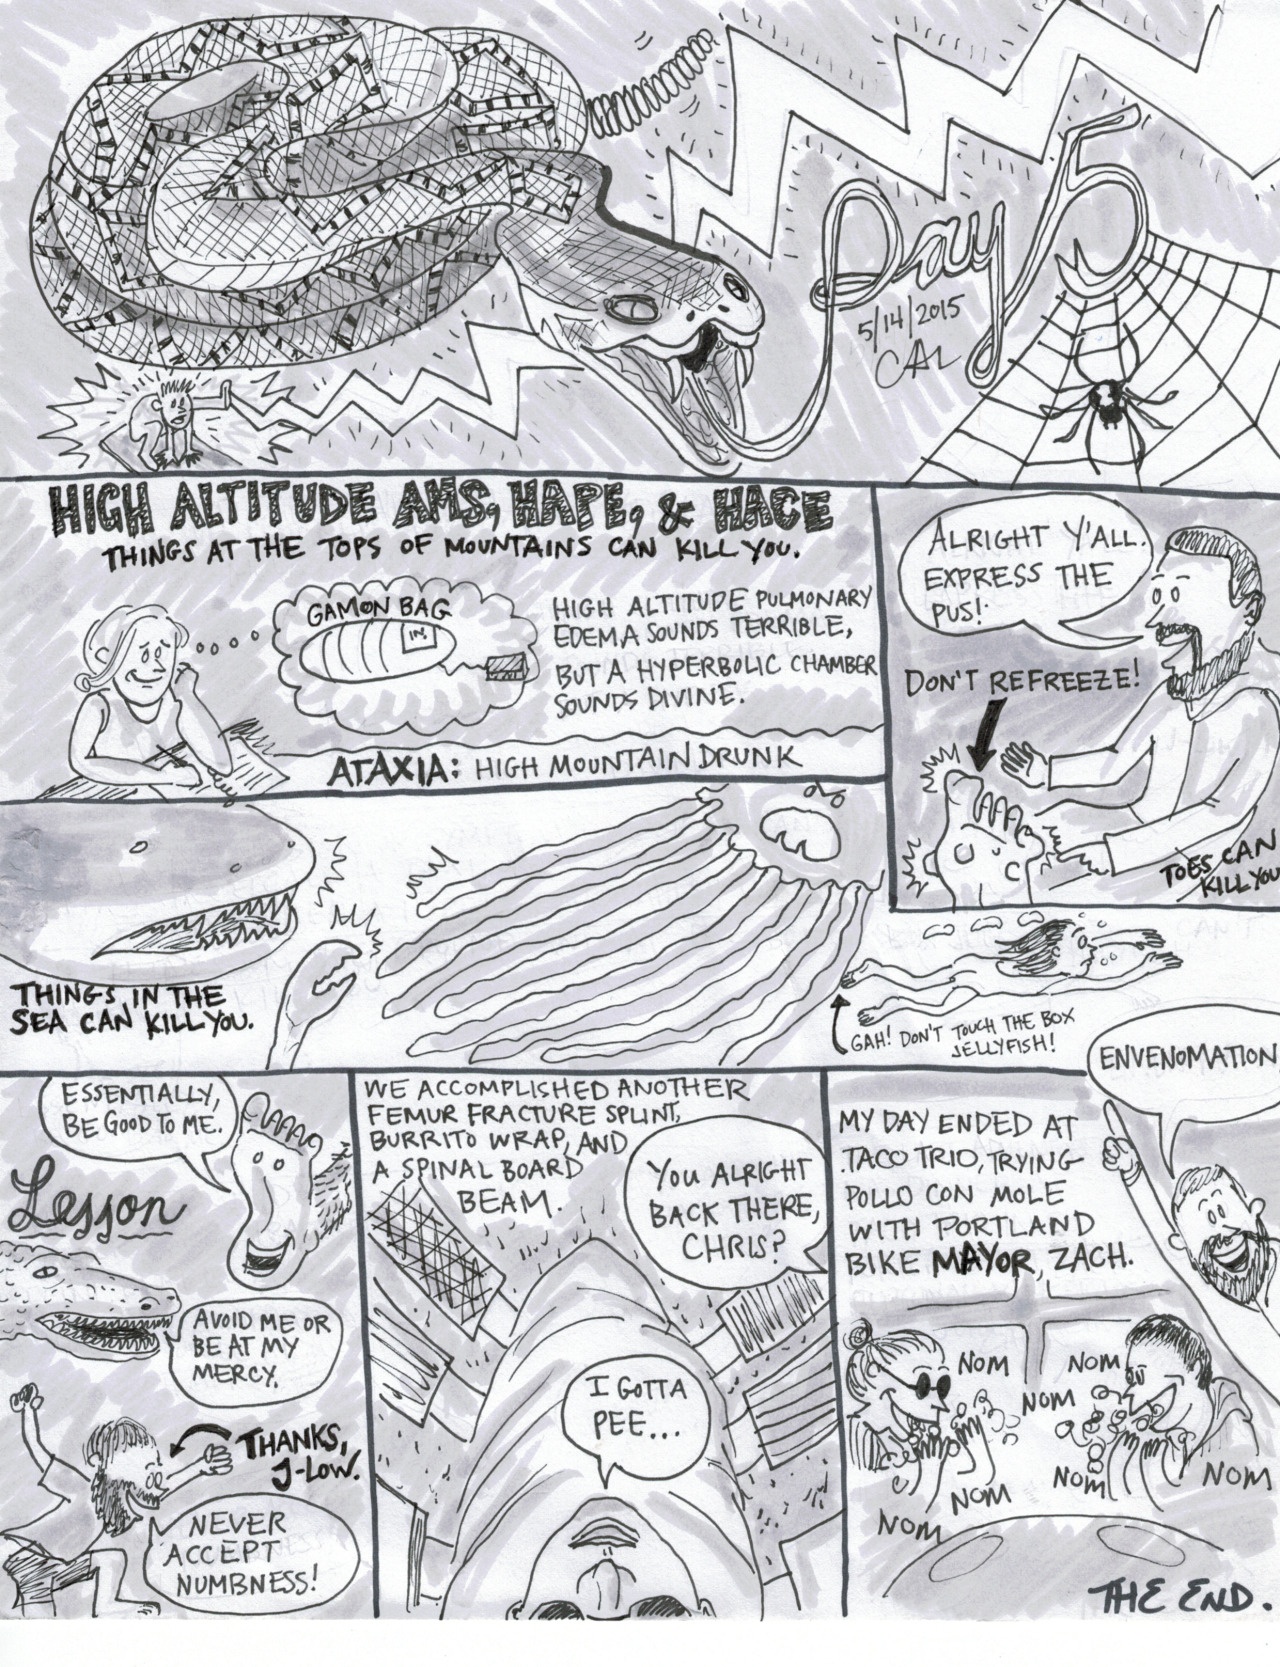 Day 5
5/14/2015
CAL
HIGH ALTITUDE AMS, HAPE, & HACE
THINGS AT THE TOPS OF MOUNTAINS CAN KILL YOU.
GAMON BAG
IN
HIGH ALTITUDE PULMONARY
EDEMA SOUNDS TERRIBLE,
BUT A HYPERBOLIC CHAMBER
SOUNDS DIVINE.
ATAXIA: HIGH MOUNTAIN DRUNK
ALRIGHT Y'ALL.
EXPRESS THE
PUS!
DON'T REFREEZE!
TOES CAN
KILL YOU
THINGS IN THE
SEA CAN KILL YOU.
GAH! DON'T TOUCH THE BOX
JELLYFISH!
ENVENOMATION
ESSENTIALLY,
BE GOOD TO ME.
Lesson
AVOID ME OR
BE AT MY
MERCY.
THANKS,
J-LOW.
NEVER
ACCEPT
NUMBNESS!
WE ACCOMPLISHED ANOTHER
FEMUR FRACTURE SPLINT,
BURRITO WRAP, AND
A SPINAL BOARD
BEAM.
YOU ALRIGHT
BACK THERE,
CHRIS?
I GOTTA
PEE...
MY DAY ENDED AT
TACO TRIO, TRYING
POLLO CON MOLE
WITH PORTLAND
BIKE MAYOR, ZACH.
NOM
NOM
NOM
NOM
NOM
NOM
NOM
THE END.